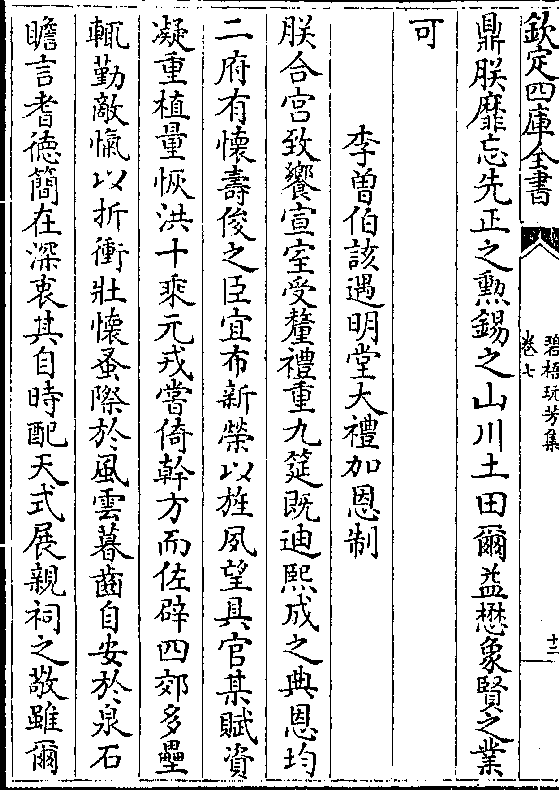 欽定四庫全書
碧梧玩芳集
卷七
十二
鼎朕靡忘先正之勲錫之山川土田爾益懋象賢之業
可
李曽伯該遇明堂大禮加恩制
朕合宫致饗宣室受釐禮重九筵既迪熙成之典恩均
二府有懐壽俊之臣宜布新榮以旌夙望具官某賦資
凝重植量恢洪十乘元戎嘗倚幹方而佐辟四郊多壘
輒勤敵愾以折衝壯懐蚤際於風雲暮齒自安於泉石
瞻言耆徳簡在深衷其自時配天式展親祠之敬雖爾